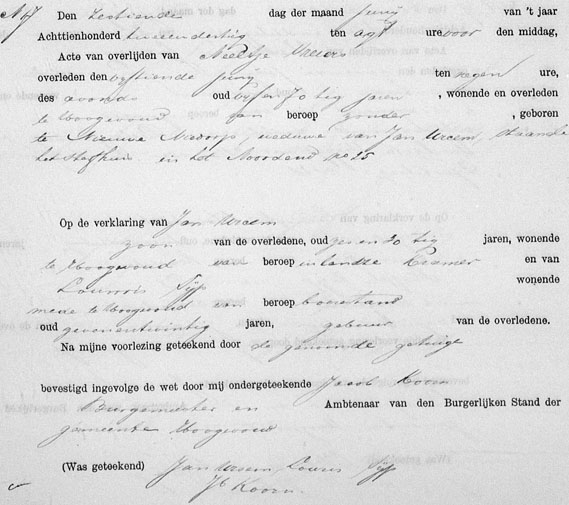 No 7 Den zestiende dag der maand Junij van 't jaar
Achttienhonderd tweeendertig ten agt ure voor den middag,
Acte van overlijden van Neeltje
overleden den vijftiende Junij ten negen ure,
des avonds oud vijfen 70 tig jaren , wonende en overleden
te Hoogwoud van beroep zonder , geboren
te Nieuwe Niedorp, weduwe van Jan Ureem, staande
het sterfhuis in het Noordend no 25
Op de verklaring van Jan Ureem
zoon van de overledene, oud jaren, wonende
te Hoogwoud van beroep inlandze Kramer en van
Louwris Tijp wonende
mede te Hoogwoud van beroep boerestand
oud zevenentwintig jaren, gebuur van de overledene.
Na mijne voorlezing geteekend door de genoemde getuige
bevestigd ingevolge de wet door mij ondergeteekende Jacob Koorn
Burgemeester en Ambtenaar van den Burgerlijken Stand der
gemeente Hoogwoud
(Was geteekend) Jan Ureem Louris Tijp
Jb Koorn